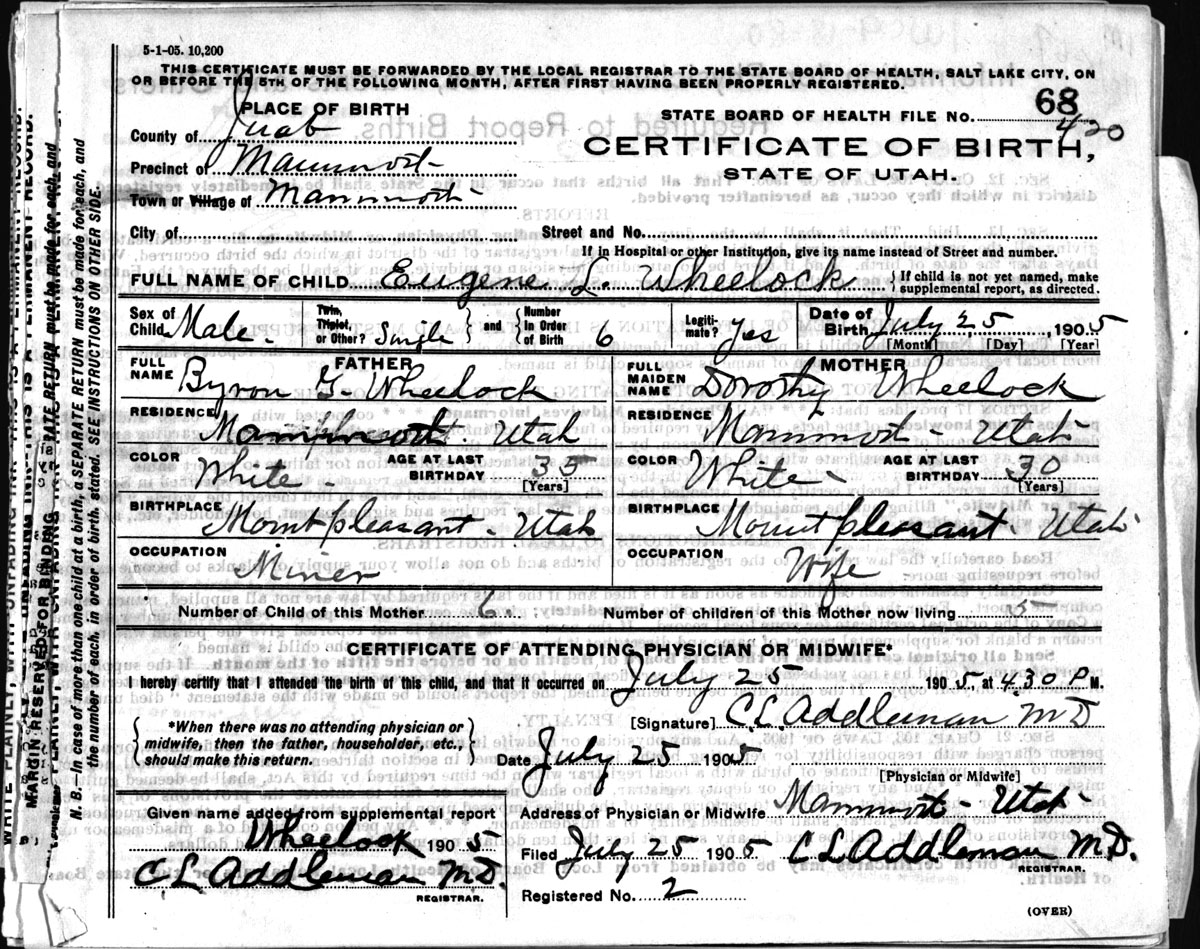 5-1-05. 10,200
THIS CERTIFICATE MUST BE FORWARDED BY THE LOCAL REGISTRAR TO THE STATE BOARD OF HEALTH, SALT LAKE CITY, ON
OR BEFORE THE 5TH OF THE FOLLOWING MONTH, AFTER FIRST HAVING BEEN PROPERLY REGISTERED.
PLACE OF BIRTH
STATE BOARD OF HEALTH FILE NO. 68
420
County of Juab
CERTIFICATE OF BIRTH,
Precinct of Mammoth
STATE OF UTAH.
Town or Village of Mammoth
City of Street and No.
If in Hospital or other Institution, give its name instead of Street and number.
FULL NAME OF CHILD Eugene L. Wheelock { If child is not yet named, make supplemental report, as directed.
Sex of Child Male. Twin, Triplet, or Other? Single } and { Number in Order of Birth 6 Legitimate? Yes Date of Birth July 25, 1905
[Month] [Day] [Year]
FATHER MOTHER
FULL NAME Byron G. Wheelock FULL MAIDEN NAME Dorothy Wheelock
RESIDENCE Mammoth. Utah RESIDENCE Mammoth. Utah
COLOR White - AGE AT LAST BIRTHDAY 35 COLOR White - AGE AT LAST BIRTHDAY 30
[Years] [Years]
BIRTHPLACE Mount pleasant - Utah BIRTHPLACE Mount pleasant - Utah
OCCUPATION Miner OCCUPATION Wife
Number of Child of this Mother 6 Number of children of this Mother now living 5
CERTIFICATE OF ATTENDING PHYSICIAN OR MIDWIFE*
I hereby certify that I attended the birth of this child, and that it occurred on July 25 1905 at 4.30 P M.
{ *When there was no attending physician or midwife, then the father, householder, etc., should make this return. }
[Signature] C L Addleman MD
Date July 25 1905
[Physician or Midwife]
Given name added from supplemental report
Address of Physician or Midwife Mammoth - Utah
Wheelock 1905
Filed July 25 1905 C L Addleman M.D.
REGISTRAR.
C L Addleman M.D.
REGISTRAR.
Registered No. 2
(OVER)
MARGIN RESERVED FOR BINDING
N. B.—In case of more than one child at a birth, a SEPARATE RETURN must be made for each, and
the number of each, in order of birth, stated. SEE INSTRUCTIONS ON OTHER SIDE.